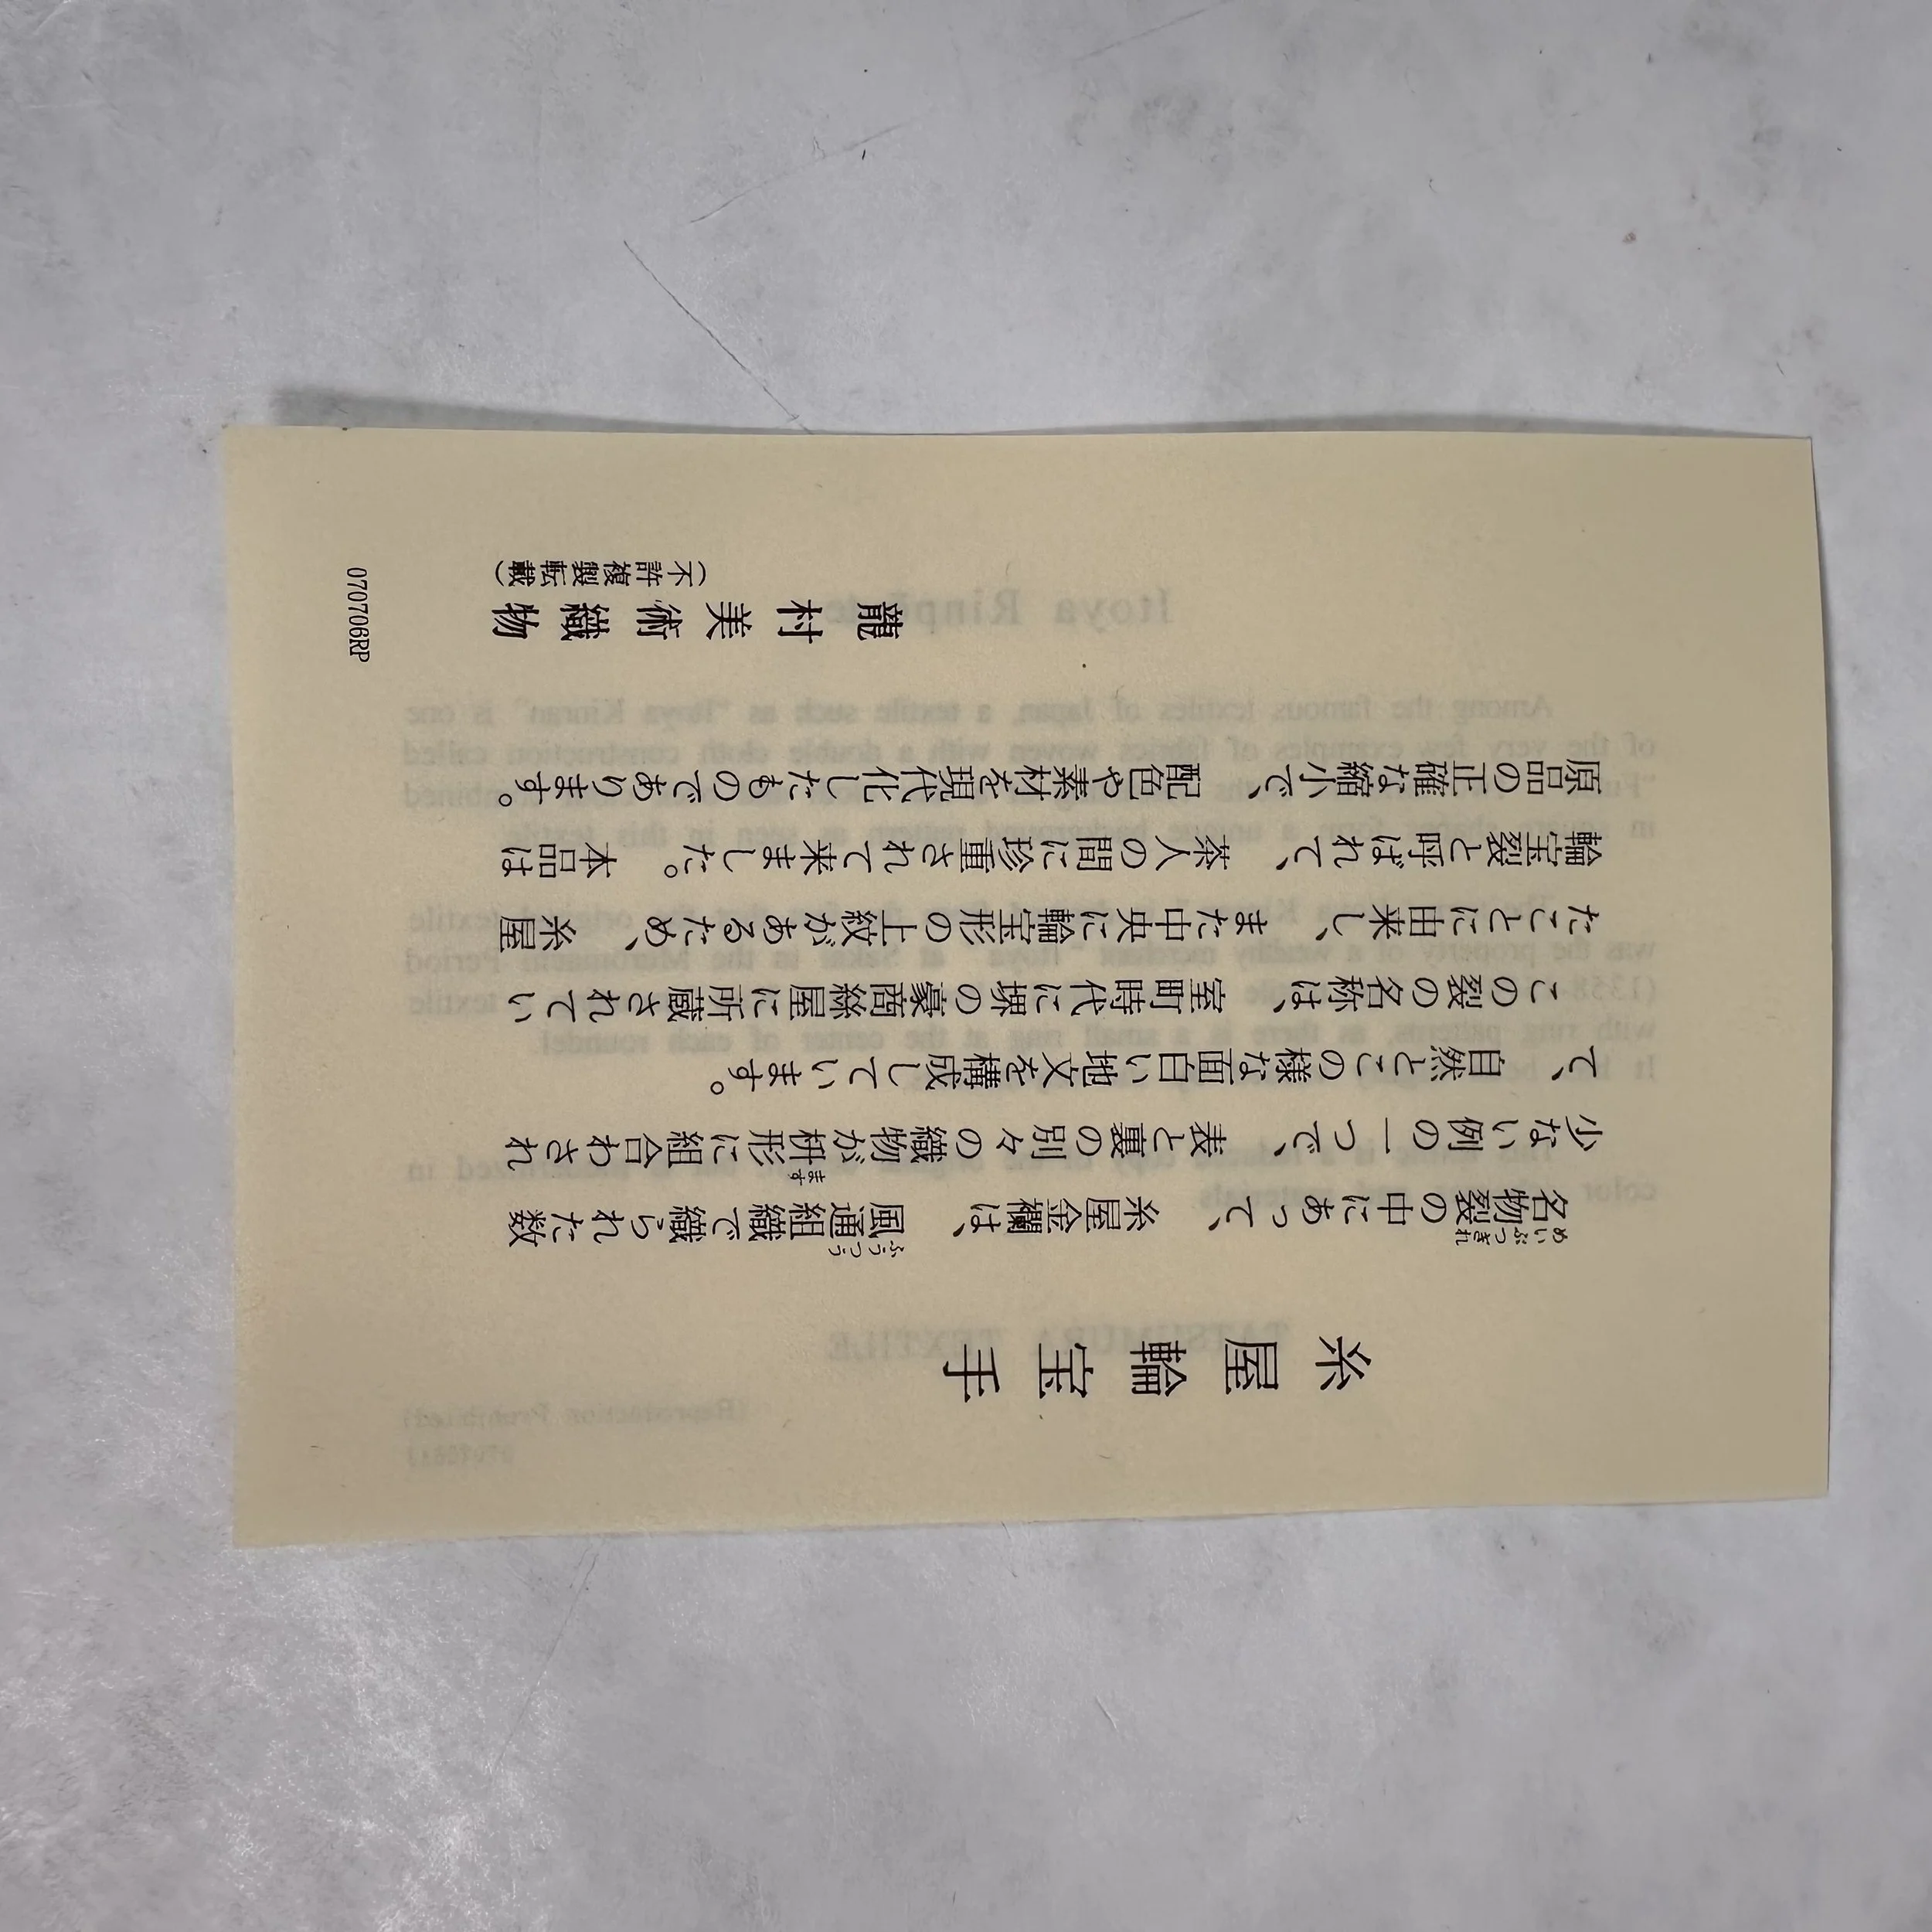 糸屋輪宝手
めいぶつぎれ ふうつう
名物裂の中にあって、糸屋金襴は、風通組織で織られた数
ます
少ない例の一つで、表と裏の別々の織物が枡形に組合わされ
て、自然とこの様な面白い地文を構成しています。
この裂の名称は、室町時代に堺の豪商絲屋に所蔵されてい
たことに由来し、また中央に輪宝形の上紋があるため、糸屋
輪宝裂と呼ばれて、茶人の間に珍重されて来ました。本品は
原品の正確な縮小で、配色や素材を現代化したものであります。
龍村美術織物
(不許複製転載)
070706RP